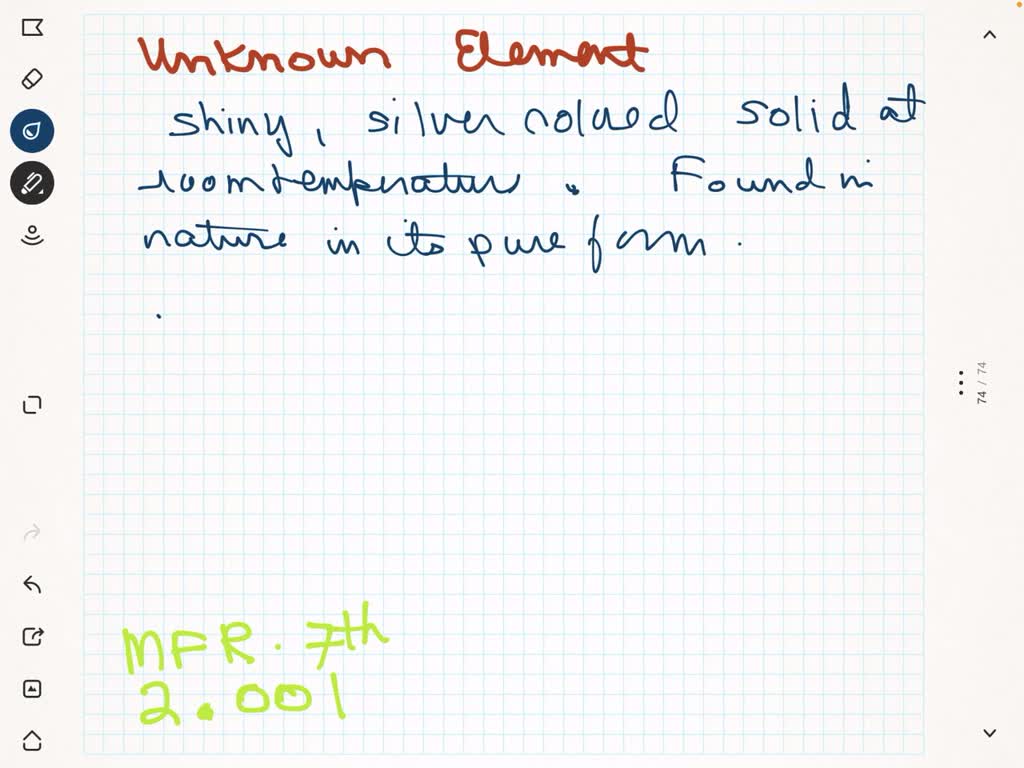 Unknown Element
shiny, silver colored solid at
room temperature. Found in
nature in its pure form.
.
MFR. 7th
2.001
74 / 74